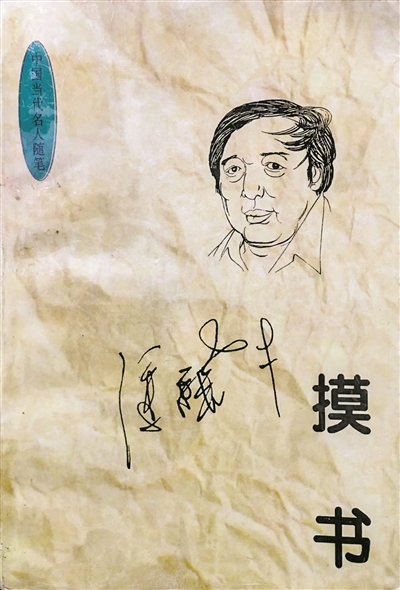 中国当代名人随笔
摸书